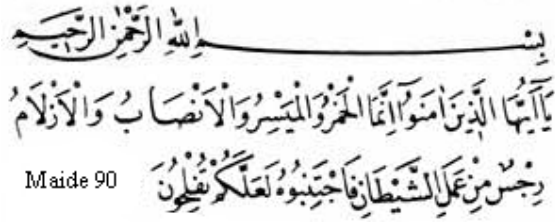 بِسْمِ اللهِ الرَّحْمٰنِ الرَّحِيمِ
يَٓا اَيُّهَا الَّذِينَ اٰمَنُٓوا اِنَّمَا الْخَمْرُ وَالْمَيْسِرُ وَالْاَنْصَابُ وَالْاَزْلَامُ
رِجْسٌ مِنْ عَمَلِ الشَّيْطَانِ فَاجْتَنِبُوهُ لَعَلَّكُمْ تُفْلِحُونَ Maide 90